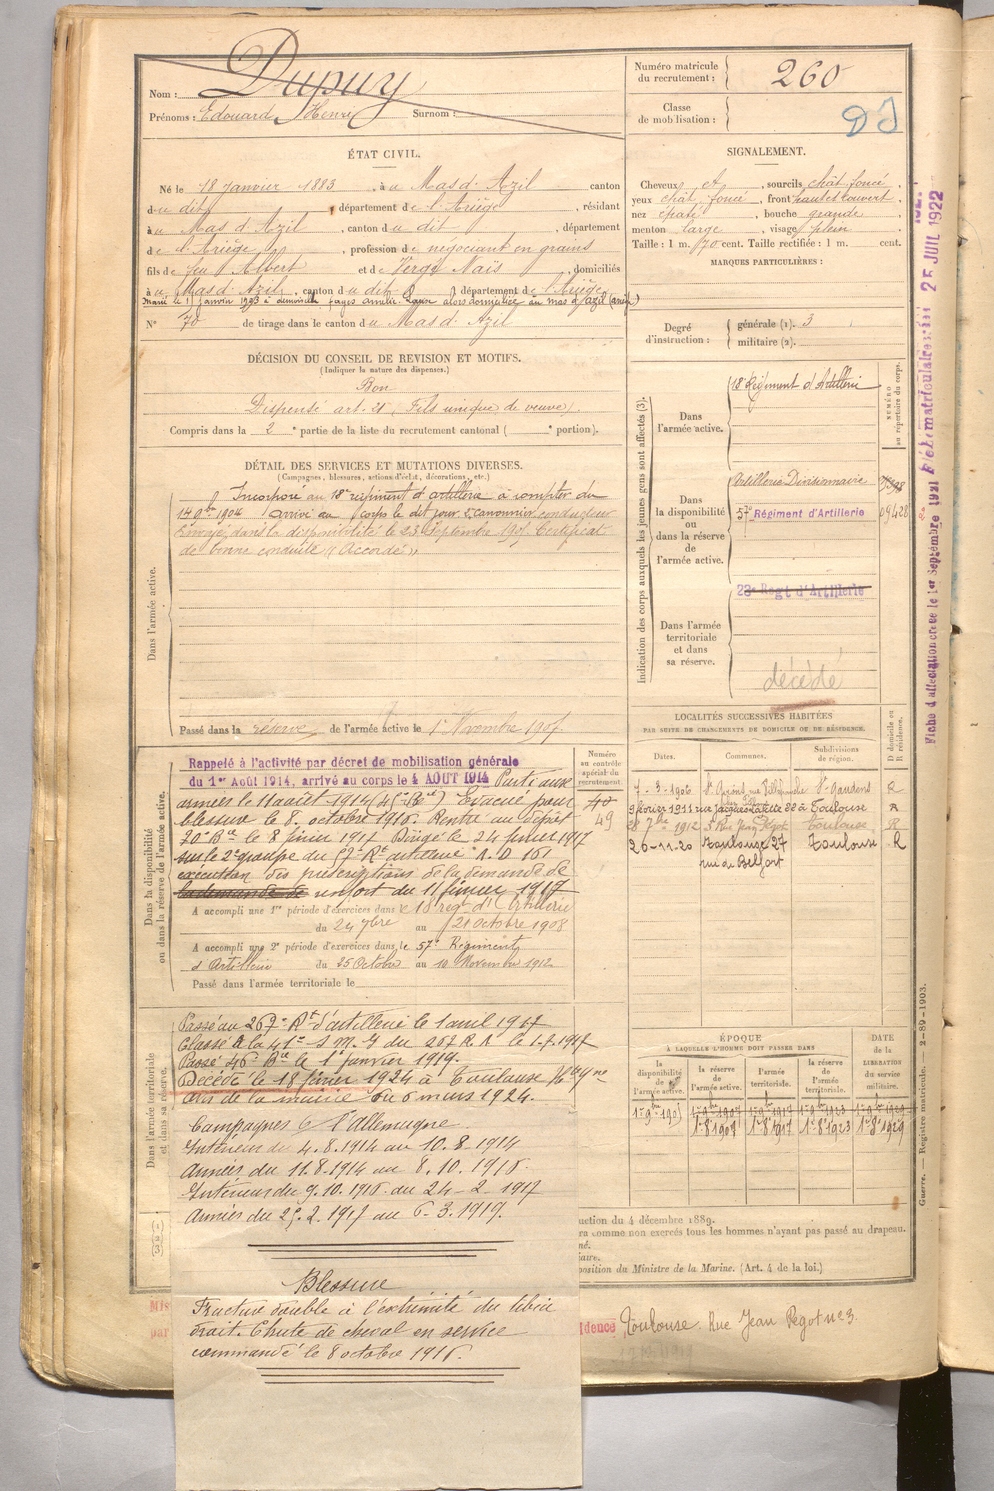 Nom : Dupuy
Prénoms : Edouard Henri Surnom :
Numéro matricule du recrutement : 260
Classe de mobilisation :
ÉTAT CIVIL.
Né le 18 Janvier 1883, à u Mas d'Azil canton
d u dit, département d e l'Ariège, résidant
à u Mas d'Azil, canton d u dit, département
d e l'Ariège, profession de négociant en grains
fils de feu Albert et de Vergé Naïs, domiciliés
à u Mas d'Azil, canton d u dit, département d e l'Ariège
Marié le janvier à demoiselle alors domiciliée au mas d'azil
N° 70 de tirage dans le canton d u Mas d'Azil
SIGNALEMENT.
Cheveux et, sourcils chât. foncé,
yeux chât. foncé, front haut et ouvert,
nez épaté, bouche grande,
menton large, visage plein
Taille : 1 m. 70 cent. Taille rectifiée : 1 m. cent.
MARQUES PARTICULIÈRES :
Degré d'instruction : générale (1). 3
militaire (2).
DÉCISION DU CONSEIL DE REVISION ET MOTIFS.
(Indiquer la nature des dispenses.)
Bon
Dispensé art. 21 (Fils unique de veuve)
Compris dans la 2e partie de la liste du recrutement cantonal ( e portion).
DÉTAIL DES SERVICES ET MUTATIONS DIVERSES.
(Campagnes, blessures, actions d'éclat, décorations, etc.)
Dans l'armée active.
Incorporé au 18e régiment d'artillerie à compter du
14 9bre 1904 arrivé au corps le dit jour 2e canonnier conducteur
Envoyé dans la disponibilité le 23 Septembre 1905 Certificat
de bonne conduite "Accordé"
Passé dans la réserve de l'armée active le 1er Novembre 1907
Indication des corps auxquels les jeunes gens sont affectés (3).
NUMÉRO au répertoire du corps.
Dans l'armée active.
18e Régiment d'Artillerie
Dans la disponibilité ou dans la réserve de l'armée active.
Artillerie Divisionnaire
57e Régiment d'Artillerie 09428
Dans l'armée territoriale et dans sa réserve.
23e Regt d'Artillerie
décédé
Fiche d'affectation créée le 1er Septembre 1921
25 JUIL 1922
Dans la disponibilité ou dans la réserve de l'armée active.
Numéro au contrôle spécial du recrutement.
40
49
Rappelé à l'activité par décret de mobilisation générale
du 1er Août 1914, arrivé au corps le 4 AOUT 1914 Parti aux
armées le 11 août 1914 Evacué pour
blessure le 8 octobre 1916. Rentré au dépôt
20e Bie le 8 février 1917 Dirigé le 24 février 1917
sur le 2e groupe du 57e Rt artillerie A.D 161
exécution des prescriptions de la demande de
la demande de renfort du 11 février 1917
A accompli une 1re période d'exercices dans le 18 régt d'Artillerie
du 24 7bre au 21 octobre 1908
A accompli une 2e période d'exercices dans le 57e Régiment
d'Artillerie du 25 Octobre au 10 Novembre 1912
Passé dans l'armée territoriale le
LOCALITÉS SUCCESSIVES HABITÉES
PAR SUITE DE CHANGEMENTS DE DOMICILE OU DE RÉSIDENCE.
D domicile ou R résidence.
Dates. Communes. Subdivisions de région.
7-3-1906 St Girons, rue Villefranche St Gaudens R
9 février 1911 Toulouse
28 7bre 1912 3 Rue Jean Pégot Toulouse R
26-11-20 Toulouse 27 rue de Belfort Toulouse R
Dans l'armée territoriale et dans sa réserve.
Passé au 267e Rt d'artillerie le 1 avril 1917
Classé à la 41e S M I du 267 R A le 1.7.1917
Passé 46e Bie le 1er janvier 1919.
Décédé le 18 février 1924 à Toulouse Hte Gne
Avis de la mairie du 6 mars 1924.
Campagnes C l'Allemagne
Intérieur du 4.8.1914 au 10.8.1914
Armées du 11.8.1914 au 8.10.1916.
Intérieur du 9.10.1916 au 24-2-1917
Armées du 25.2.1917 au 6-3.1919.
Blessure
Fracture double à l'extrémité du tibia
droit. Chute de cheval en service
commandé le 8 octobre 1916.
ÉPOQUE
À LAQUELLE L'HOMME DOIT PASSER DANS
DATE de la LIBÉRATION du service militaire.
la disponibilité de l'armée active.
la réserve de l'armée active.
l'armée territoriale.
la réserve de l'armée territoriale.
1er 9bre 1907 1er 9bre 1917 1er 9bre 1923 1er 9bre 1929
1er 8 1907 1er 8 1917 1er 8 1923 1er 8 1929
uction du 4 décembre 1889.
ra comme non exercés tous les hommes n'ayant pas passé au drapeau.
né.
iaire.
position du Ministre de la Marine. (Art. 4 de la loi.)
idence Toulouse Rue Jean Pégot n° 3.
Guerre. — Registre matricule. — 2-89-1903.